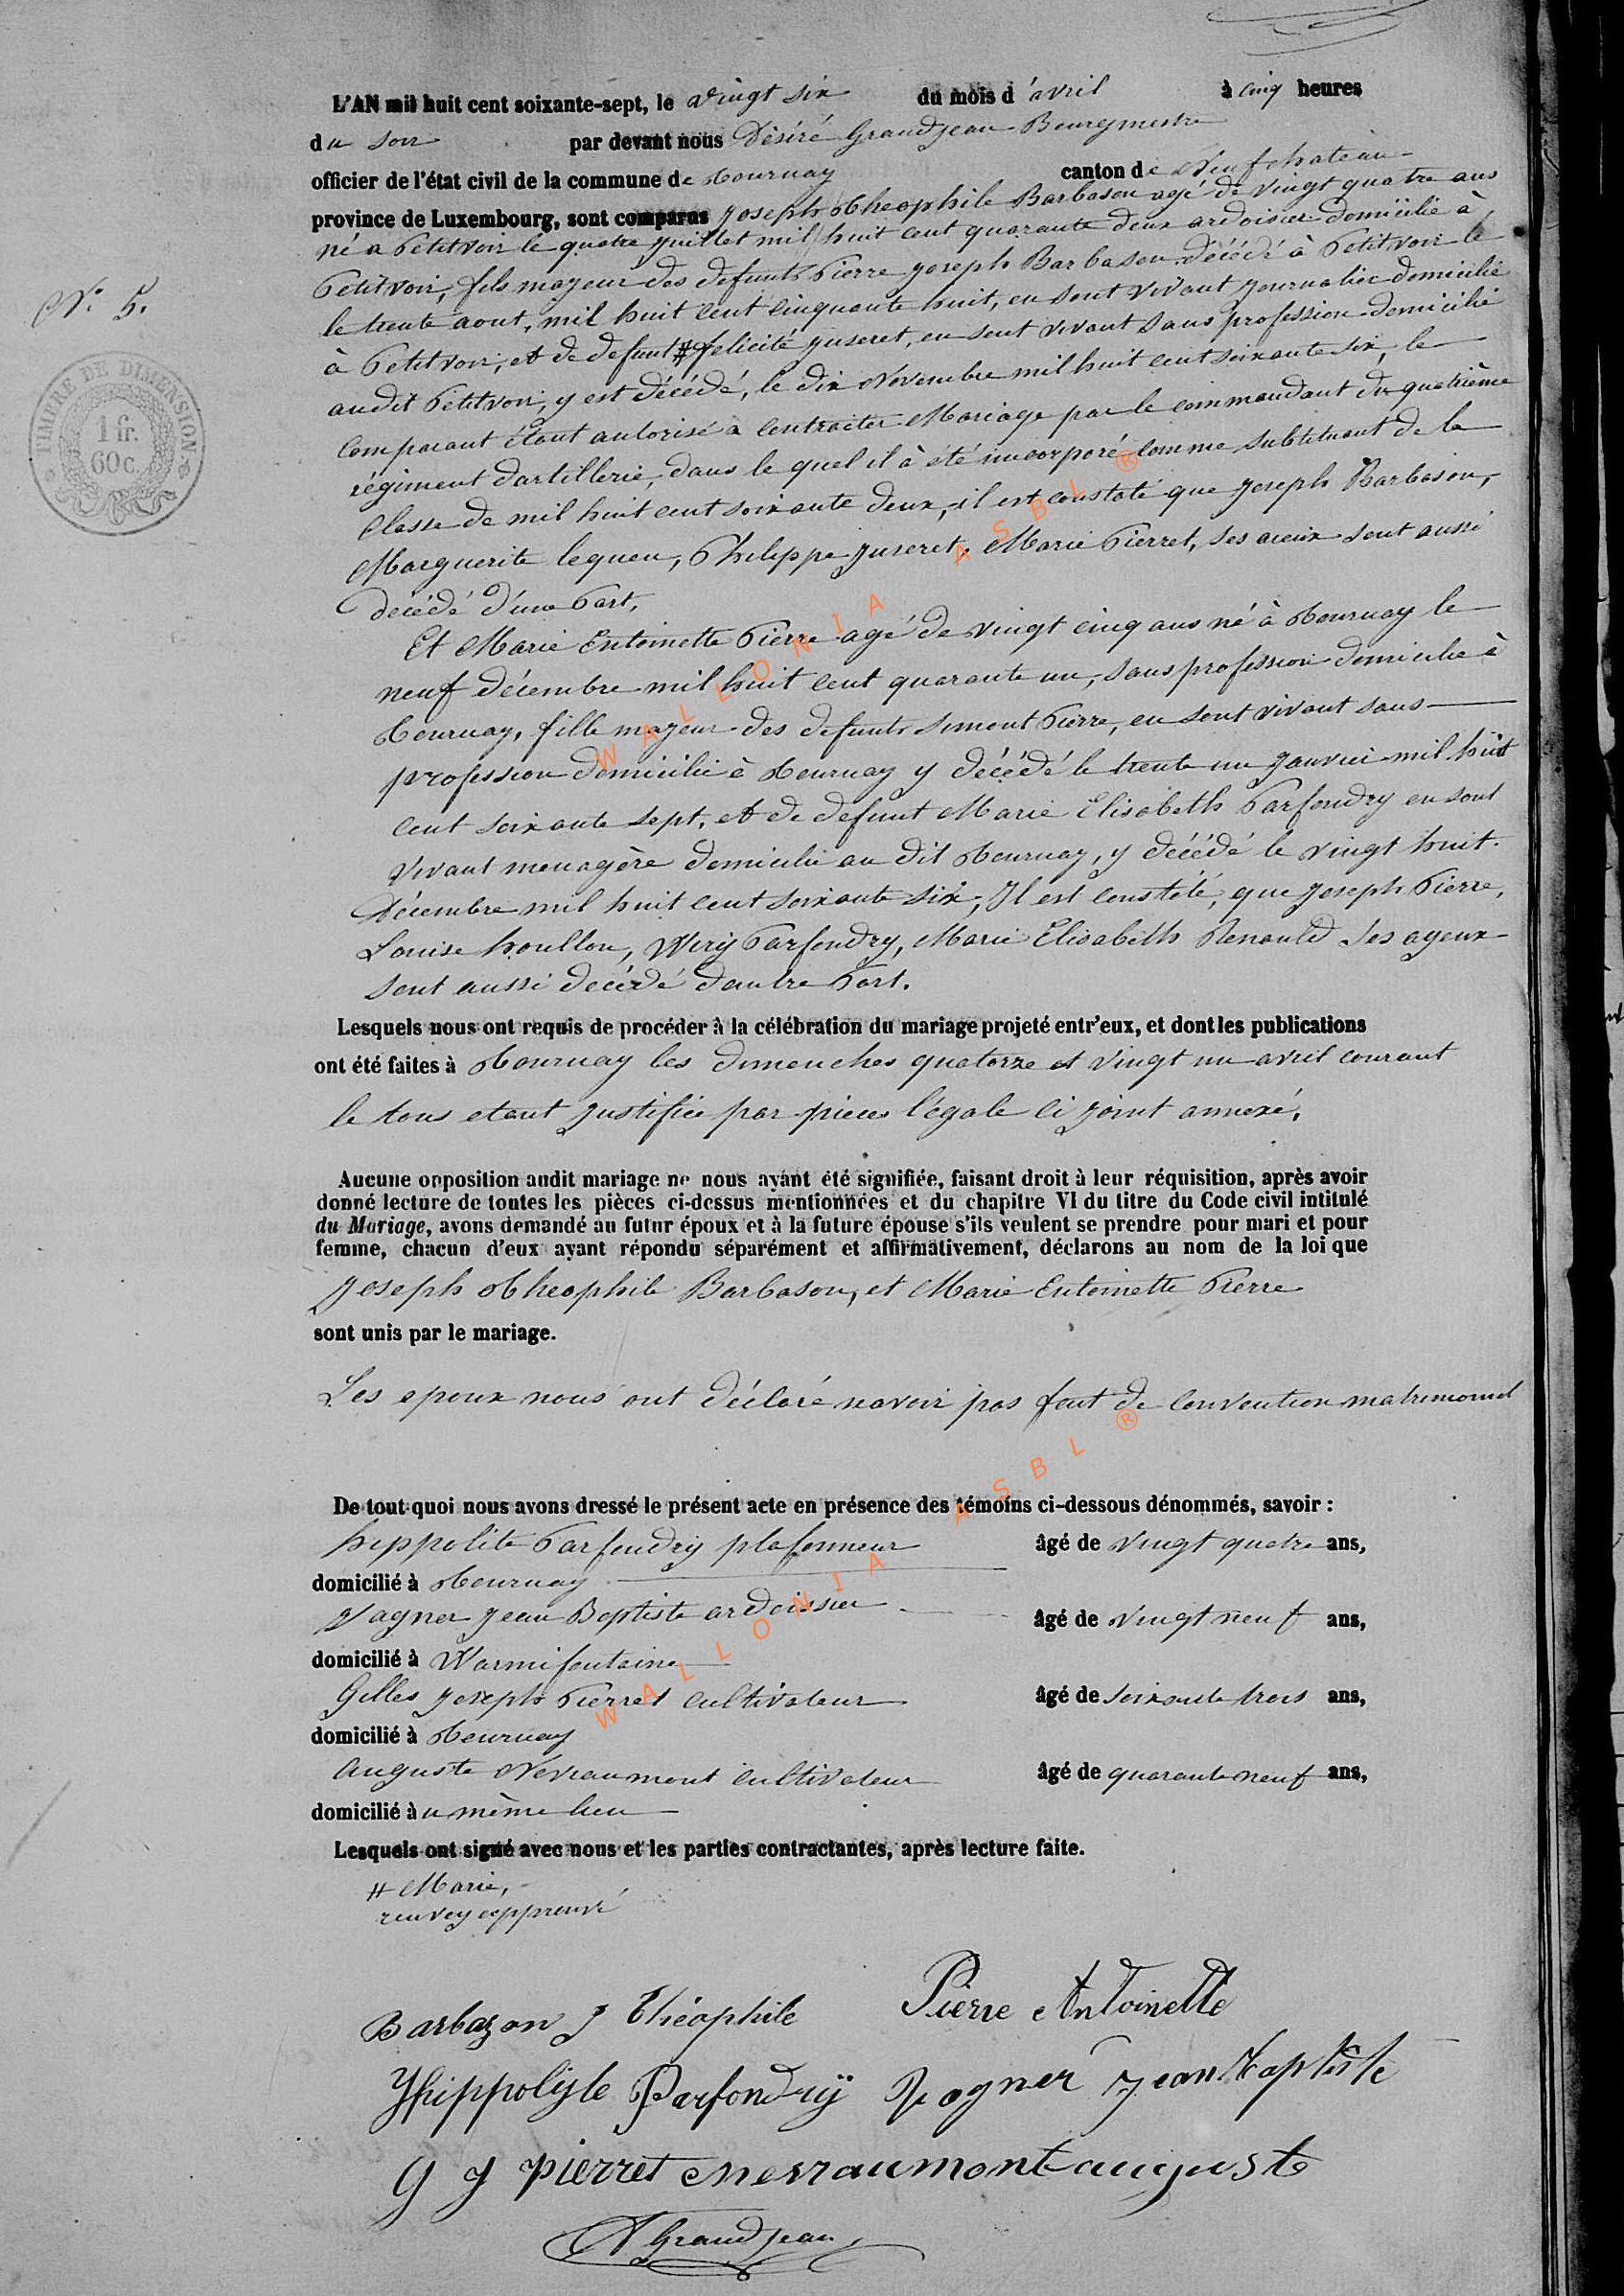 L'AN mil huit cent soixante-sept, le vingt six du mois d'avril à cinq heures
du soir par devant nous Désiré Grandjean Bourgmestre
officier de l'état civil de la commune de Tournay canton de Neufchateau
province de Luxembourg, sont comparus Joseph Theophile Barbason agé de vingt quatre ans
né a Petitvoir le quatre juillet mil huit cent quarante deux ardoisier domicilié à
Petitvoir, fils majeur des defunts Pierre Joseph Barbason décédé à Petitvoir le
le trente aout, mil huit cent cinquante huit, en sont vivant journalier domicilié
à Petitvoir, et de defunt # felicité juseret, en sont vivant sans profession domicilié
audit Petitvoir, y est décédé, le dix Novembre mil huit cent soixante six, le
comparant étant autorisé a contracter Mariage par le commandant du quatrième
régiment dartillerie, dans le quel il à été incorporé comme substituant de la
Classe de mil huit cent soixante deux, il est constaté que joseph Barbason,
Marguerite lequeu, Philippe juseret, Marie Pierret, ses aieux sont aussi
décédé d'une Part,
Et Marie Entoinette Pierre agé de vingt cinq ans né à Tournay le
neuf décembre mil huit cent quarante un, sans profession domicilié à
Tournay, fille majeur des defunts simont Pierre, en sont vivant sans
profession domicilié à Tournay y décédé le trente un janvier mil huit
cent soixante sept, et de defunt Marie Elisabeth Parfondry en sont
vivant menagère domicilié au dit Tournay, y décédé le vingt huit
Décembre mil huit cent soixante six, Il est constaté, que joseph Pierre,
Louise houllon, Wiry Parfondry, Marie Elisabeth Renauld ses ayeux
sont aussi décédé dautre Part.
N° 5.
TIMBRE DE DIMENSION
1 fr.
60 c.
Lesquels nous ont requis de procéder à la célébration du mariage projeté entr'eux, et dont les publications
ont été faites à Tournay les dimenches quatorze et vingt un avril courant
le tous etant justifiée par pieces légale ci joint annexé.
Aucune opposition audit mariage ne nous ayant été signifiée, faisant droit à leur réquisition, après avoir
donné lecture de toutes les pièces ci-dessus mentionnées et du chapitre VI du titre du Code civil intitulé
du Mariage, avons demandé au futur époux et à la future épouse s'ils veulent se prendre pour mari et pour
femme, chacun d'eux ayant répondu séparément et affirmativement, déclarons au nom de la loi que
Joseph Theophile Barbason, et Marie Entoinette Pierre
sont unis par le mariage.
Les epoux nous ont déclaré navoir pas fait de convention matrimoniel
De tout quoi nous avons dressé le présent acte en présence des témoins ci-dessous dénommés, savoir :
hippolite Parfondry plafonneur âgé de vingt quatre ans,
domicilié à Tournay
Vagner jean Baptiste ardoisier âgé de vingt neuf ans,
domicilié à Warmifontaine
Gilles joseph Pierret cultivateur âgé de soixante trois ans,
domicilié à Tournay
Auguste Nevraumont cultivateur âgé de quarante neuf ans,
domicilié àu même lieu
Lesquels ont signé avec nous et les parties contractantes, après lecture faite.
# Marie,
renvoy approuvé
Barbazon J Théophile Pierre Antoinette
Hippolyte Parfondrÿ Vagner jean Baptiste
G J Pierret nevraumont auguste
Grandjean
WALLONIA ASBL ®
WALLONIA ASBL ®